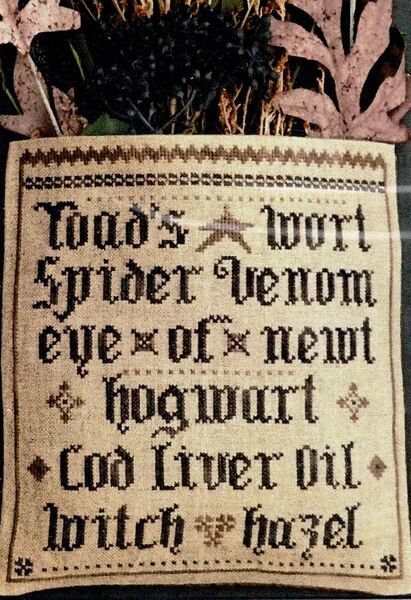 Toad's wort
Spider Venom
eye of newt
hogwart
Cod Liver Oil
witch hazel